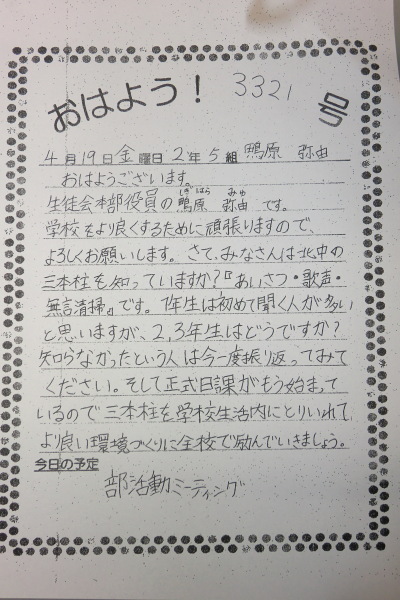 おはよう! 3321 号
4月19日金曜日2年5組 鴫原 弥由
おはようございます。
生徒会本部役員の鴫原(しぎはら) 弥由(みゆ)です。
学校をより良くするために頑張りますので、
よろしくお願いします。さて、みなさんは北中の
三本柱を知っていますか?『あいさつ・歌声・
無言清掃』です。1年生は初めて聞く人が多い
と思いますが、2,3年生はどうですか?
知らなかったという人は今一度振り返ってみて
ください。そして正式日課がもう始まって
いるので三本柱を学校生活内にとりいれて、
より良い環境づくりに全校で励んでいきましょう。
今日の予定
部活動ミーティング